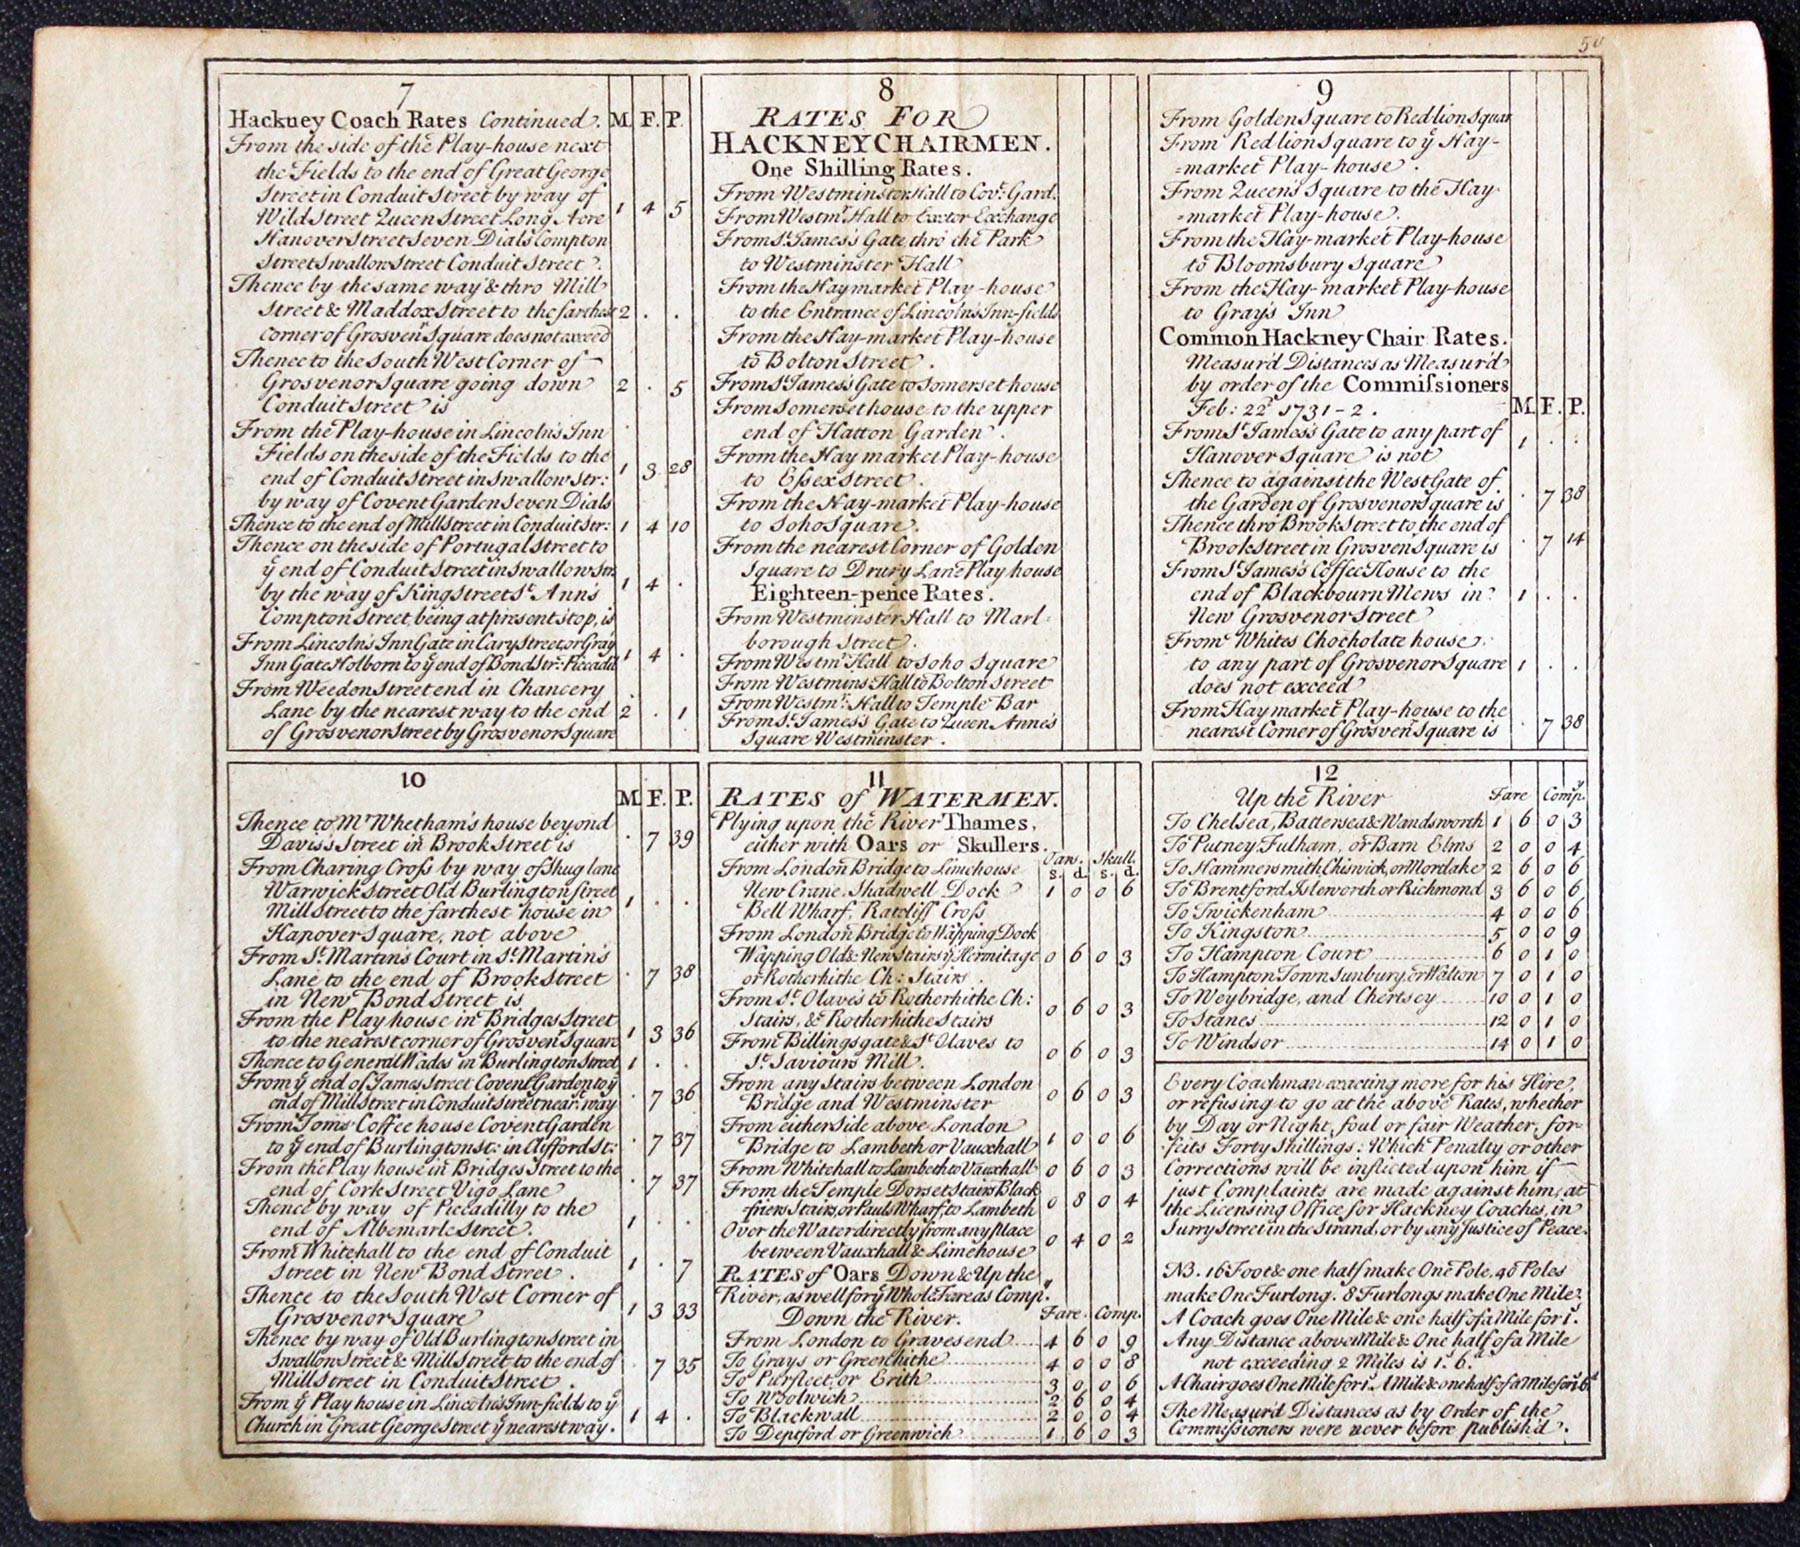 50
7
Hackney Coach Rates Continued. M. F. P.
From the side of the Play-house next
the Fields to the end of Great George
Street in Conduit Street by way of
Wild Street Queen Street Long Acre 1 4 5
Hanover Street Seven Dials Compton
Street Swallow Street Conduit Street.
Thence by the same way & thro Mill
Street & Maddox Street to the farthest 2 . .
corner of Grosvenr. Square does not exceed
Thence to the South West Corner of
Grosvenor Square going down 2 . 5
Conduit Street is
From the Play-house in Lincolns Inn
Fields on the side of the Fields to the
end of Conduit Street in Swallow Str: 1 3 28
by way of Covent Garden Seven Dials
Thence to the end of Mill Street in Conduit Str: 1 4 10
Thence on the side of Portugal Street to
ye end of Conduit Street in Swallow Str.
by the way of King Street St. Ann's 1 4 .
Compton Street, being at present stop, is
From Lincoln's Inn Gate in Cary Street, or Gray
Inn Gate Holborn to ye end of Bond Str: Piccadil. 1 4 .
From Weedon Street end in Chancery
Lane by the nearest way to the end 2 . 1
of Grosvenor Street by Grosvenor Square
8
RATES FOR
HACKNEY CHAIRMEN.
One Shilling Rates.
From Westminster Hall to Covt. Gard.
From Westmr. Hall to Exeter Exchange
From St. James's Gate thro' the Park
to Westminster Hall
From the Haymarket Play-house
to the Entrance of Lincoln's Inn-fields
From the Hay-market Play-house
to Bolton Street.
From St. James's Gate to Somerset house
From Somerset house to the upper
end of Hatton Garden.
From the Hay market Play-house
to Essex Street.
From the Hay-market Play-house
to Soho Square.
From the nearest Corner of Golden
Square to Drury Lane Play house
Eighteen-pence Rates.
From Westminster Hall to Marl-
borough Street.
From Westmr. Hall to Soho Square
From Westmins: Hall to Bolton Street
From Westmr: Hall to Temple Bar
From St. James's Gate to Queen Anne's
Square Westminster.
9
From Golden Square to Red lion Squar
From Red lion Square to ye Hay-
=market Play-house.
From Queen's Square to the Hay
=market Play-house.
From the Hay-market Play-house
to Bloomsbury Square
From the Hay-market Play-house
to Grays Inn
Common Hackney Chair Rates.
Measur'd Distances as Measur'd
by order of the Commissioners
Feb: 22d. 1731-2. M. F. P.
From St. James's Gate to any part of
Hanover Square is not 1 . .
Thence to against the West Gate of
the Garden of Grosvenor Square is . 7 38
Thence thro' Brook Street to the end of
Brook Street in Grosvenr. Square is . 7 14
From St. James's Coffee House to the
end of Blackbourn Mews in 1 . .
New Grosvenor Street
From Whites Chocholate house
to any part of Grosvenor Square 1 . .
does not exceed
From Hay market Play-house to the
nearest Corner of Grosvenr. Square is . 7 38
10
M. F. P.
Thence to Mr. Whetham's house beyond
Davis's Street in Brook Street is . 7 39
From Charing Cross by way of Shug lane
Warwick Street Old Burlington Street
Mill Street to the farthest house in 1 . .
Hanover Square, not above
From St. Martin's Court in St. Martin's
Lane to the end of Brook Street . 7 38
in New Bond Street is
From the Play house in Bridges Street
to the nearest corner of Grosvenr. Square 1 3 36
Thence to General Wades in Burlington Street 1 . .
From ye end of James Street Covent Garden to ye
end of Mill Street in Conduit Street near. way . 7 36
From Toms Coffee house Covent Garden
to ye end of Burlington St: in Clifford St: . 7 37
From the Play house in Bridges Street to the
end of Cork Street Vigo Lane . 7 37
Thence by way of Piccadilly to the
end of Albemarle Street. 1 . .
From Whitehall to the end of Conduit
Street in New Bond Street. 1 . 7
Thence to the South West Corner of
Grosvenor Square 1 3 33
Thence by way of Old Burlington Street in
Swallow Street & Mill Street to the end of . 7 35
Mill Street in Conduit Street.
From ye Play house in Lincolns Inn-fields to ye
Church in Great George Street ye nearest way. 1 4 .
11
RATES of WATERMEN.
Plying upon the River Thames,
either with Oars or Skullers. Oars. Skull.
From London Bridge to Limehouse s. d. s. d.
New Crane, Shadwell Dock 1 0 0 6
Bell Wharf, Ratcliff Cross
From London Bridge to Wapping Dock
Wapping Old & New Stairs ye Hermitage 0 6 0 3
or Rotherhithe Ch: Stairs.
From St. Olaves to Rotherhithe Ch:
Stairs, & Rotherhithe Stairs 0 6 0 3
From Billingsgate & St. Olaves to
St. Saviours Mill. 0 6 0 3
From any Stairs between London
Bridge and Westminster 0 6 0 3
From either Side above London
Bridge to Lambeth or Vauxhall 1 0 0 6
From Whitehall to Lambeth to Vauxhall 0 6 0 3
From the Temple Dorset Stairs Black
-friers Stairs, or Pauls Wharf to Lambeth 0 8 0 4
Over the Water directly from any place
between Vauxhall & Limehouse 0 4 0 2
RATES of Oars Down & Up the
River, as well for ye Whole Fare as Compy.
Down the River. Fare. Comp.
From London to Gravesend 4 6 0 9
To Grays or Greenhithe 4 0 0 8
To Purfleet or Erith 3 0 0 6
To Woolwich 2 6 0 4
To Blackwall 2 0 0 4
To Deptford or Greenwich 1 6 0 3
12
Up the River Fare Compy.
To Chelsea, Battersea & Wandsworth 1 6 0 3
To Putney, Fulham, or Barn Elms 2 0 0 4
To Hammersmith, Chiswick, or Mortlake 2 6 0 6
To Brentford, Isleworth or Richmond 3 6 0 6
To Twickenham 4 0 0 6
To Kingston 5 0 0 9
To Hampton Court 6 0 1 0
To Hampton Town Sunbury, or Walton 7 0 1 0
To Weybridge, and Chertsey 10 0 1 0
To Stanes 12 0 1 0
To Windsor 14 0 1 0
Every Coachman exacting more for his Hire,
or refusing to go at the above Rates, whether
by Day or Night, foul or fair Weather, for-
feits Forty Shillings: Which Penalty or other
Corrections will be inflicted upon him if
just Complaints are made against him, at
the Licensing Office for Hackney Coaches, in
Surry Street in the Strand, or by any Justice of Peace.
NB. 16 Foot & one half make One Pole, 40 Poles
make One Furlong. 8 Furlongs make One Mile.
A Coach goes One Mile & one half of a Mile for 1s.
Any Distance above Mile & One half of a Mile
not exceeding 2 Miles is 1s. 6d.
A Chair goes One Mile for 1s. A Mile & one half of a Mile for 1s. 6d
The Measur'd Distances as by Order of the
Commissioners were never before publish'd.